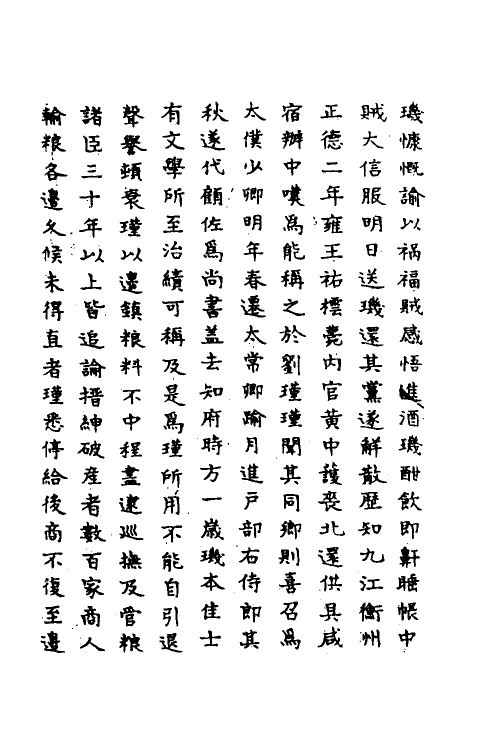 璣慷慨諭以禍福賊感悟進酒璣酣飲即鼾睡帳中
賊大信服明日送璣還其黨遂解散歴知九江衡州
正德二年雍王祐橒薨内官黄中護喪北還供具咸
宿辦中嘆爲能稱之於劉瑾瑾聞其同鄉則喜召爲
太僕少卿明年春遷太常卿踰月進戸部右侍郎其
秋遂代顧佐爲尚書盖去知府時方一嵗璣本佳士
有文學所至治績可稱及是爲瑾所用不能自引退
聲譽頓衰瑾以邊鎮粮料不中程盡逮巡撫及管粮
諸臣三十年以上皆追論搢紳破産者數百家商人
輸粮各邊久候未得直者瑾悉停給後商不復至邊